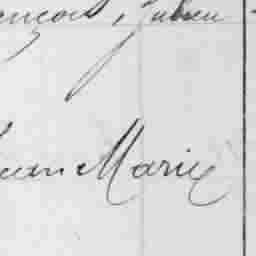 ançois, Julien
ean Marie